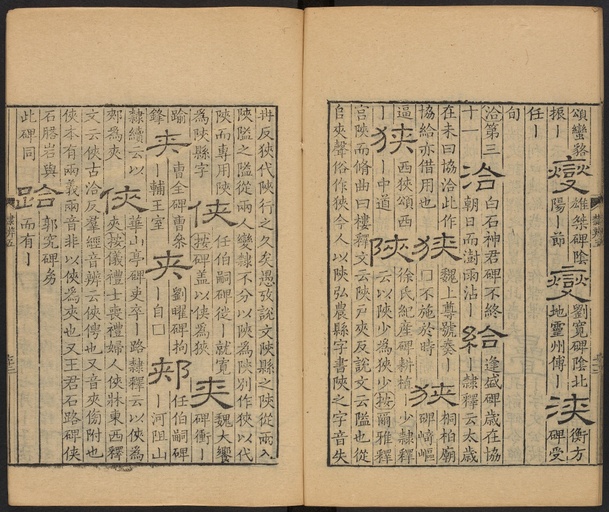 頌蠻貊
振丨
燮
雄桀碑陰
陽丨節
燮
劉寬碑陰北
地靈州傅丨
浹
衡方
碑受
任丨
旬
洽第三
十一
洽
白石神君碑不終
朝日而澍雨沾丨
給
逢盛碑歲在協
丨隸釋云太歲
在未曰協洽此作
協給亦借用也
狹
魏上尊號奏丨
口不施於時
狹
桐柏廟
碑崎嶇
逼
丨
狹
西狹頌西
丨中道
陝
徐氏紀產碑耕植丨少隸釋
云以陝少為狹少按爾雅釋
宮陝而脩曲曰樓釋文云陝戶夾反說文云隘也從
𨸏夾聲俗作狹今人以陝弘農縣字書陝之字音失
冉反狹代陝行之久矣愚攷說文陝縣之陝從兩入
陝隘之陝從兩人變隸不分以陝為陝別作狹以代
陝而專用陝
為陝縣字
俠
任伯嗣碑徙丨就寬
按碑蓋以俠為狹
夾
魏大饗
碑衝丨
踰
鋒
夾
曹全碑曹參
輔王室
夾
劉曜碑拘
丨自口
郟
任伯嗣碑
丨河阻山
隸續云以
郟為夾
俠
華山亭碑吏卒丨路隸釋云以俠為
夾按儀禮士喪禮婦人俠牀東西釋
文云俠古洽反羣經音辨云俠傍也又音夾傍附也
俠本有兩義兩音非以俠為夾也又王君石路碑俠
石腊岩與
此碑同
跲
郭究碑
而有丨